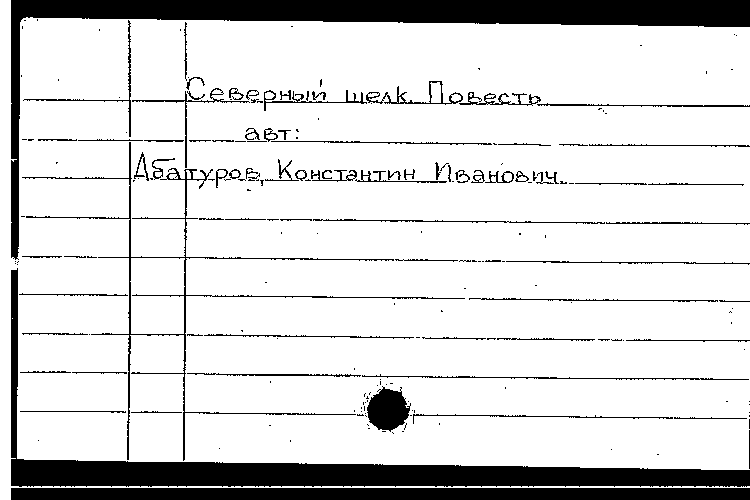 Северный шелк. Повесть
авт:
Абатуров, Константин Иванович.